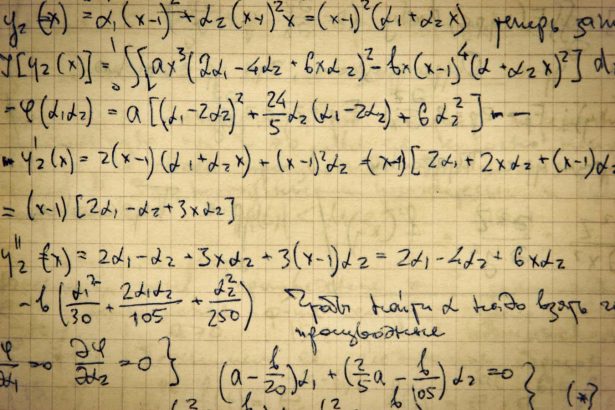 y₂(x) = α₁(x-1)² + α₂(x-1)²x = (x-1)²(α₁+α₂x) теперь
J[y₂(x)] = ∫₀¹ [ax³(2α₁-4α₂+6xα₂)² - bx(x-1)⁴(α+α₂x)²] d
- φ(α₁α₂) = a[(α₁-2α₂)² + 24/5 α₂(α₁-2α₂) + 6α₂²] - -
y₂'(x) = 2(x-1)(α₁+α₂x) + (x-1)²α₂ = (x-1)[2α₁+2xα₂+(x-1)α₂
= (x-1)[2α₁-α₂+3xα₂]
y₂''(x) = 2α₁-α₂+3xα₂+3(x-1)α₂ = 2α₁-4α₂+6xα₂
- b(α₁²/30 + 2α₁α₂/105 + α₂²/250) Чтобы найти α надо взять
производные
φ/α₁ = 0 ∂φ/∂α₂ = 0 }
(a - b/20)α₁ + (2/5 a - b/105)α₂ = 0 } (*)